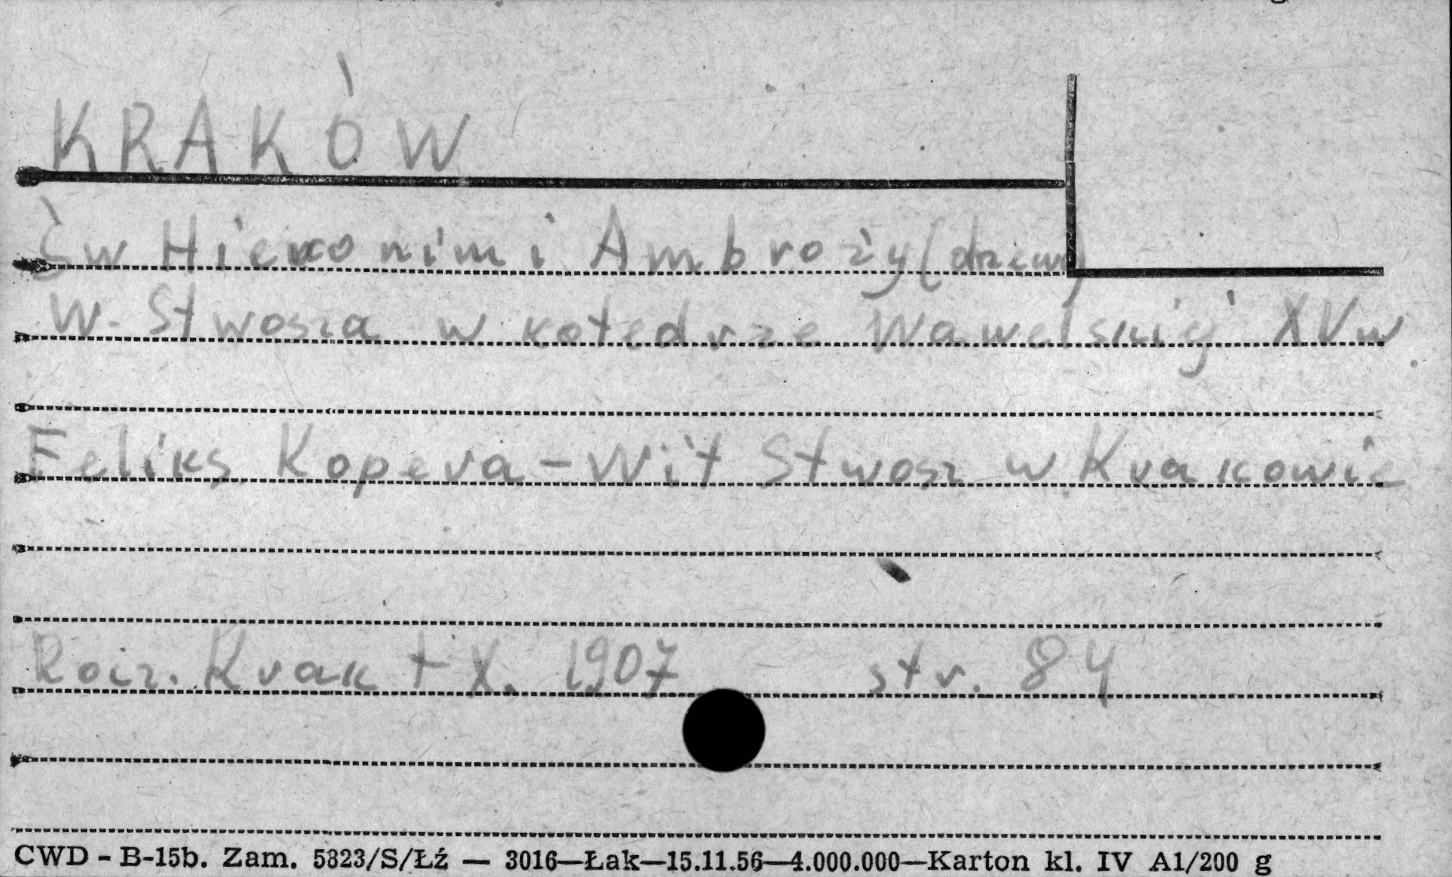 KRAKÓW
Św Hieronim i Ambroży (drzew)
W. Stwosza w katedrze Wawelskiej XV w.
Feliks Kopera - Wit Stwosz w Krakowie
Rocz. Krak t X. 1907 str. 84
CWD - B-15b. Zam. 5823/S/Łź — 3016—Łak—15.11.56—4.000.000—Karton kl. IV A1/200 g